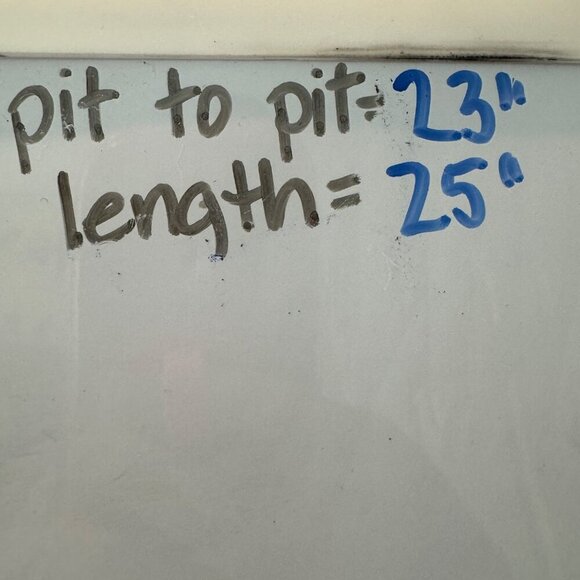 pit to pit=23"
length=25"